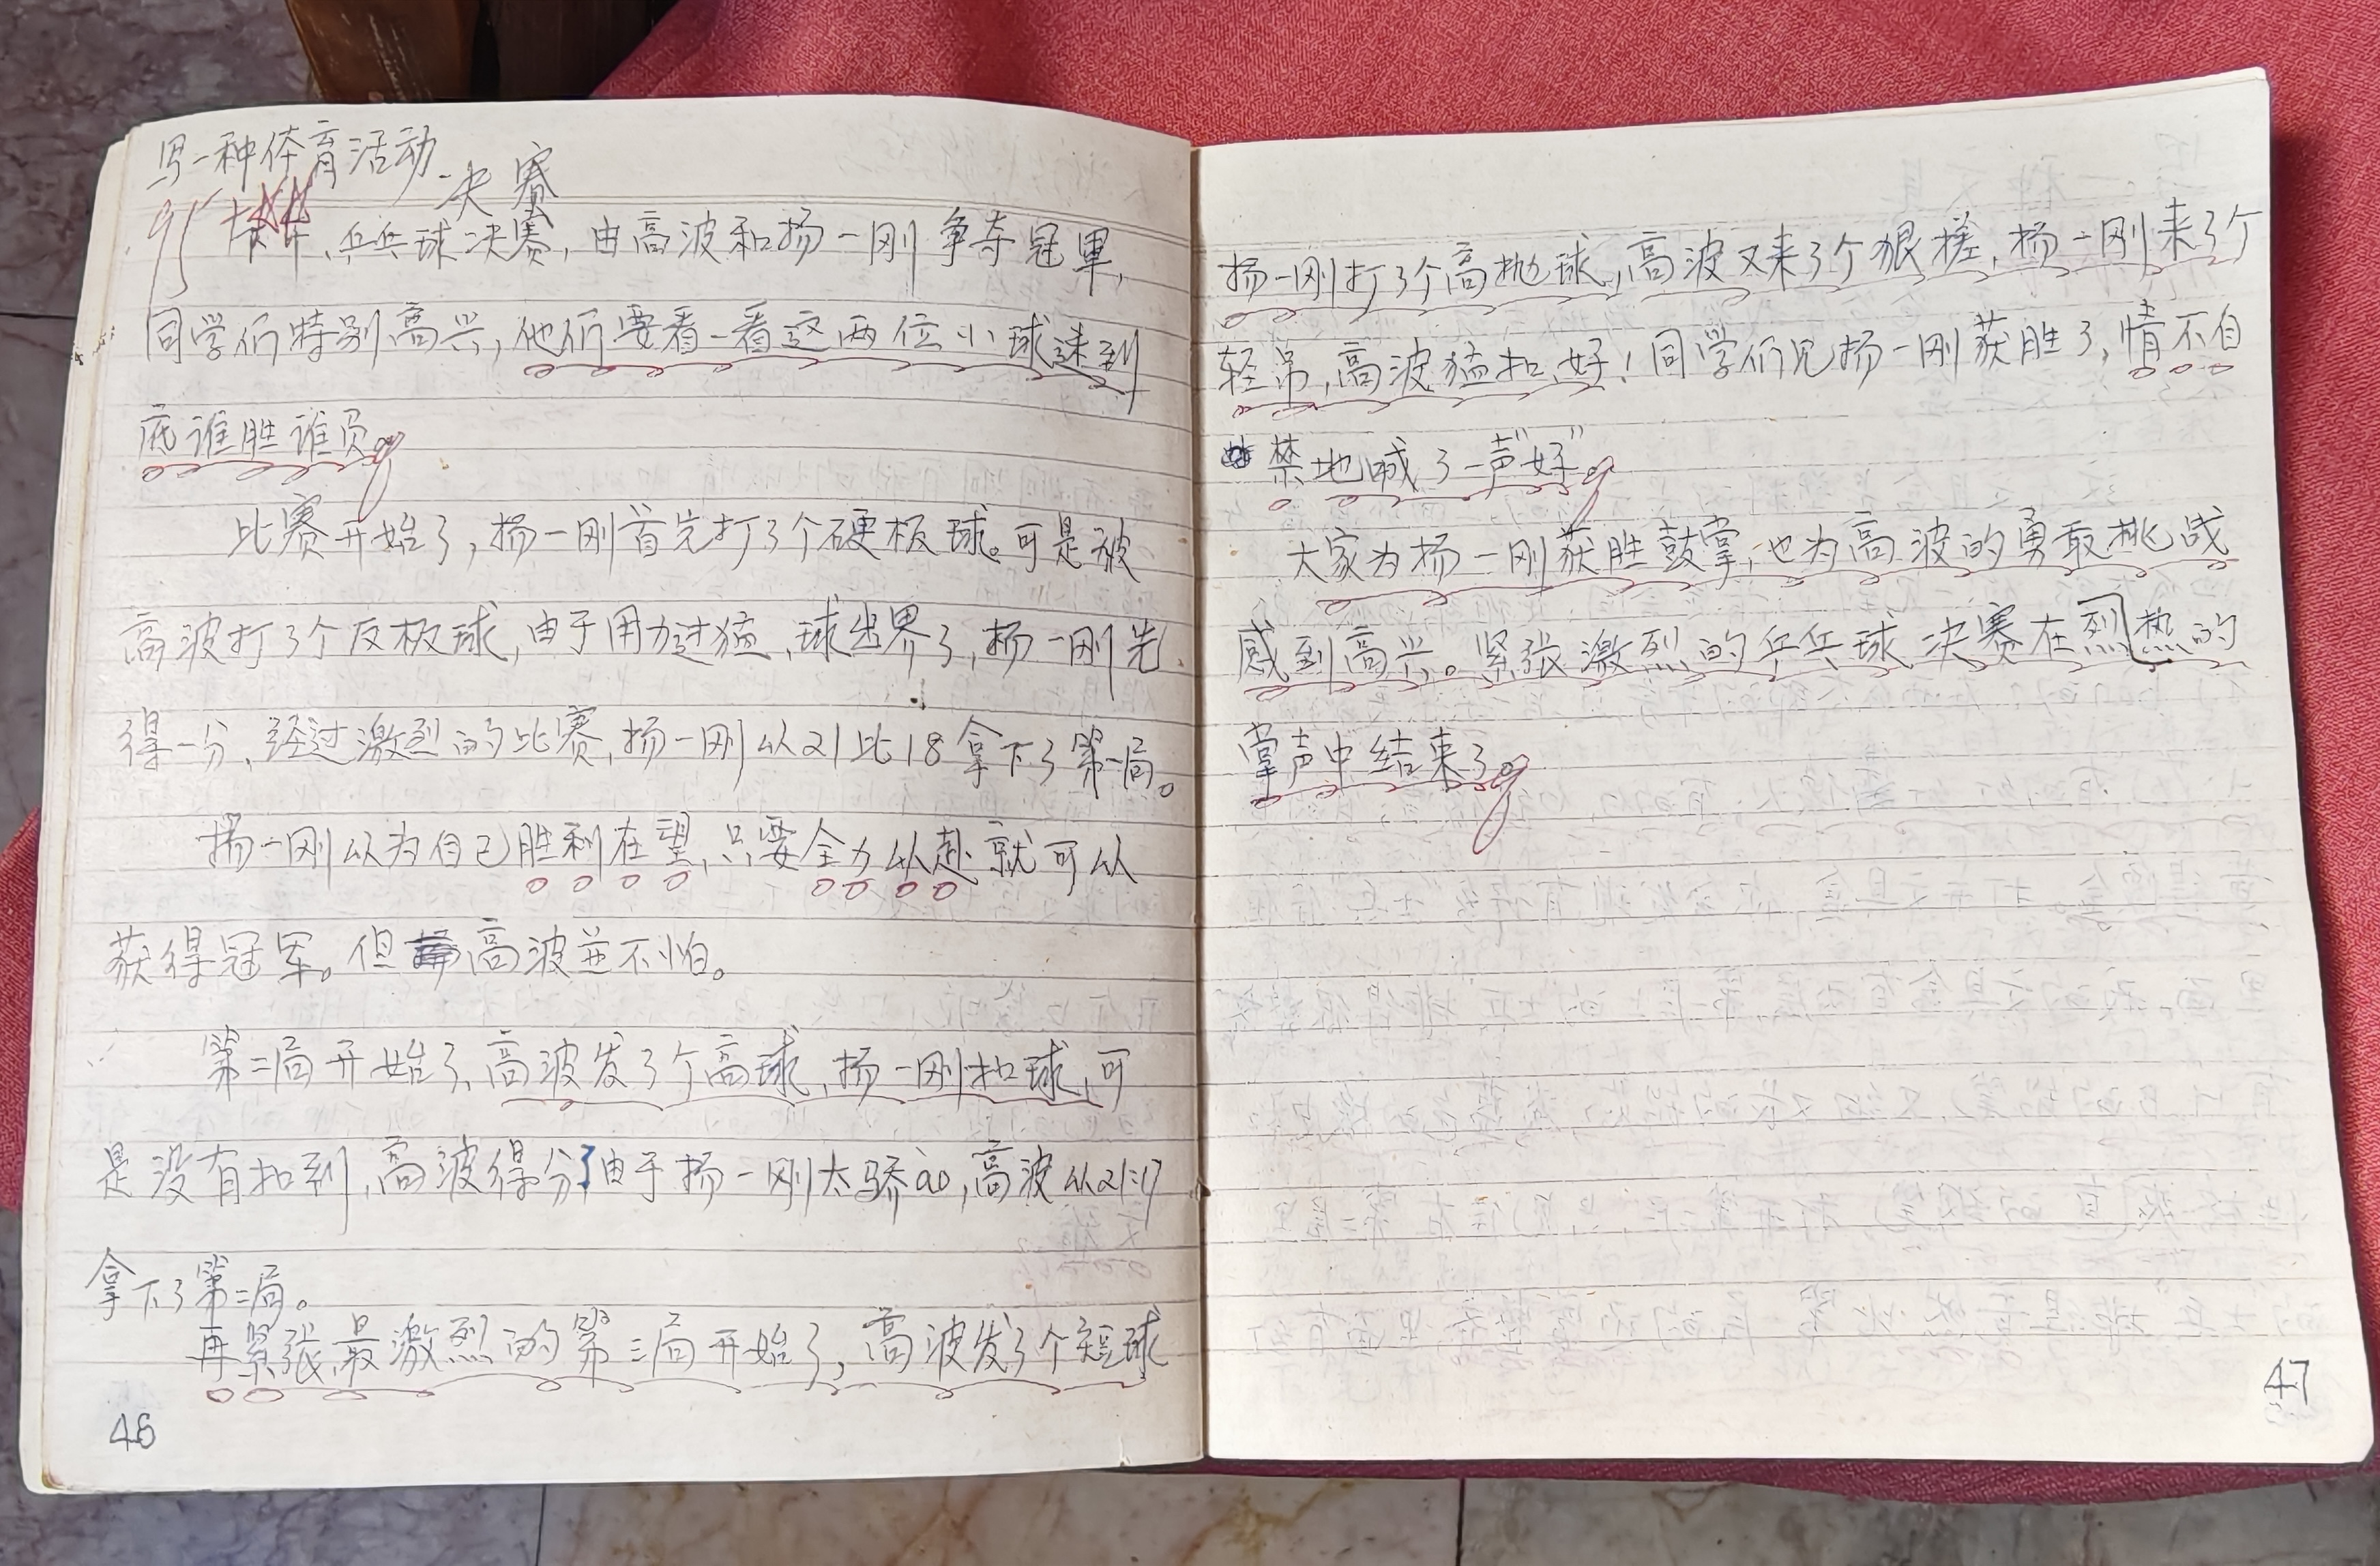 写一种体育活动
决赛
95
乒乓球决赛，由高波和扬一刚争夺冠军，
同学们特别高兴，他们要看一看这两位小球迷到
底谁胜谁负。
比赛开始了，扬一刚首先打了个硬板球。可是被
高波打了个反板球，由于用力过猛、球出界了，扬一刚先
得一分、经过激烈的比赛，扬一刚以21比18拿下了第一局。
扬一刚以为自己胜利在望，只要全力以赴就可以
获得冠军。但高波并不怕。
第二局开始了、高波发了个高球，扬一刚扣球，可
是没有扣到，高波得分了由于扬一刚太骄ao，高波以21:17
拿下了第二局。
再紧张最激烈的第三局开始了，高波发了个短球
46
扬一刚打了个高抛球，高波又来了个狠搓，扬一刚来了个
轻吊，高波猛扣，好！同学们见扬一刚获胜了，情不自
禁地喊了一声“好”。
大家为扬一刚获胜鼓掌，也为高波的勇敢挑战
感到高兴。紧张激烈的乒乓球决赛在烈热的
掌声中结束了。
47